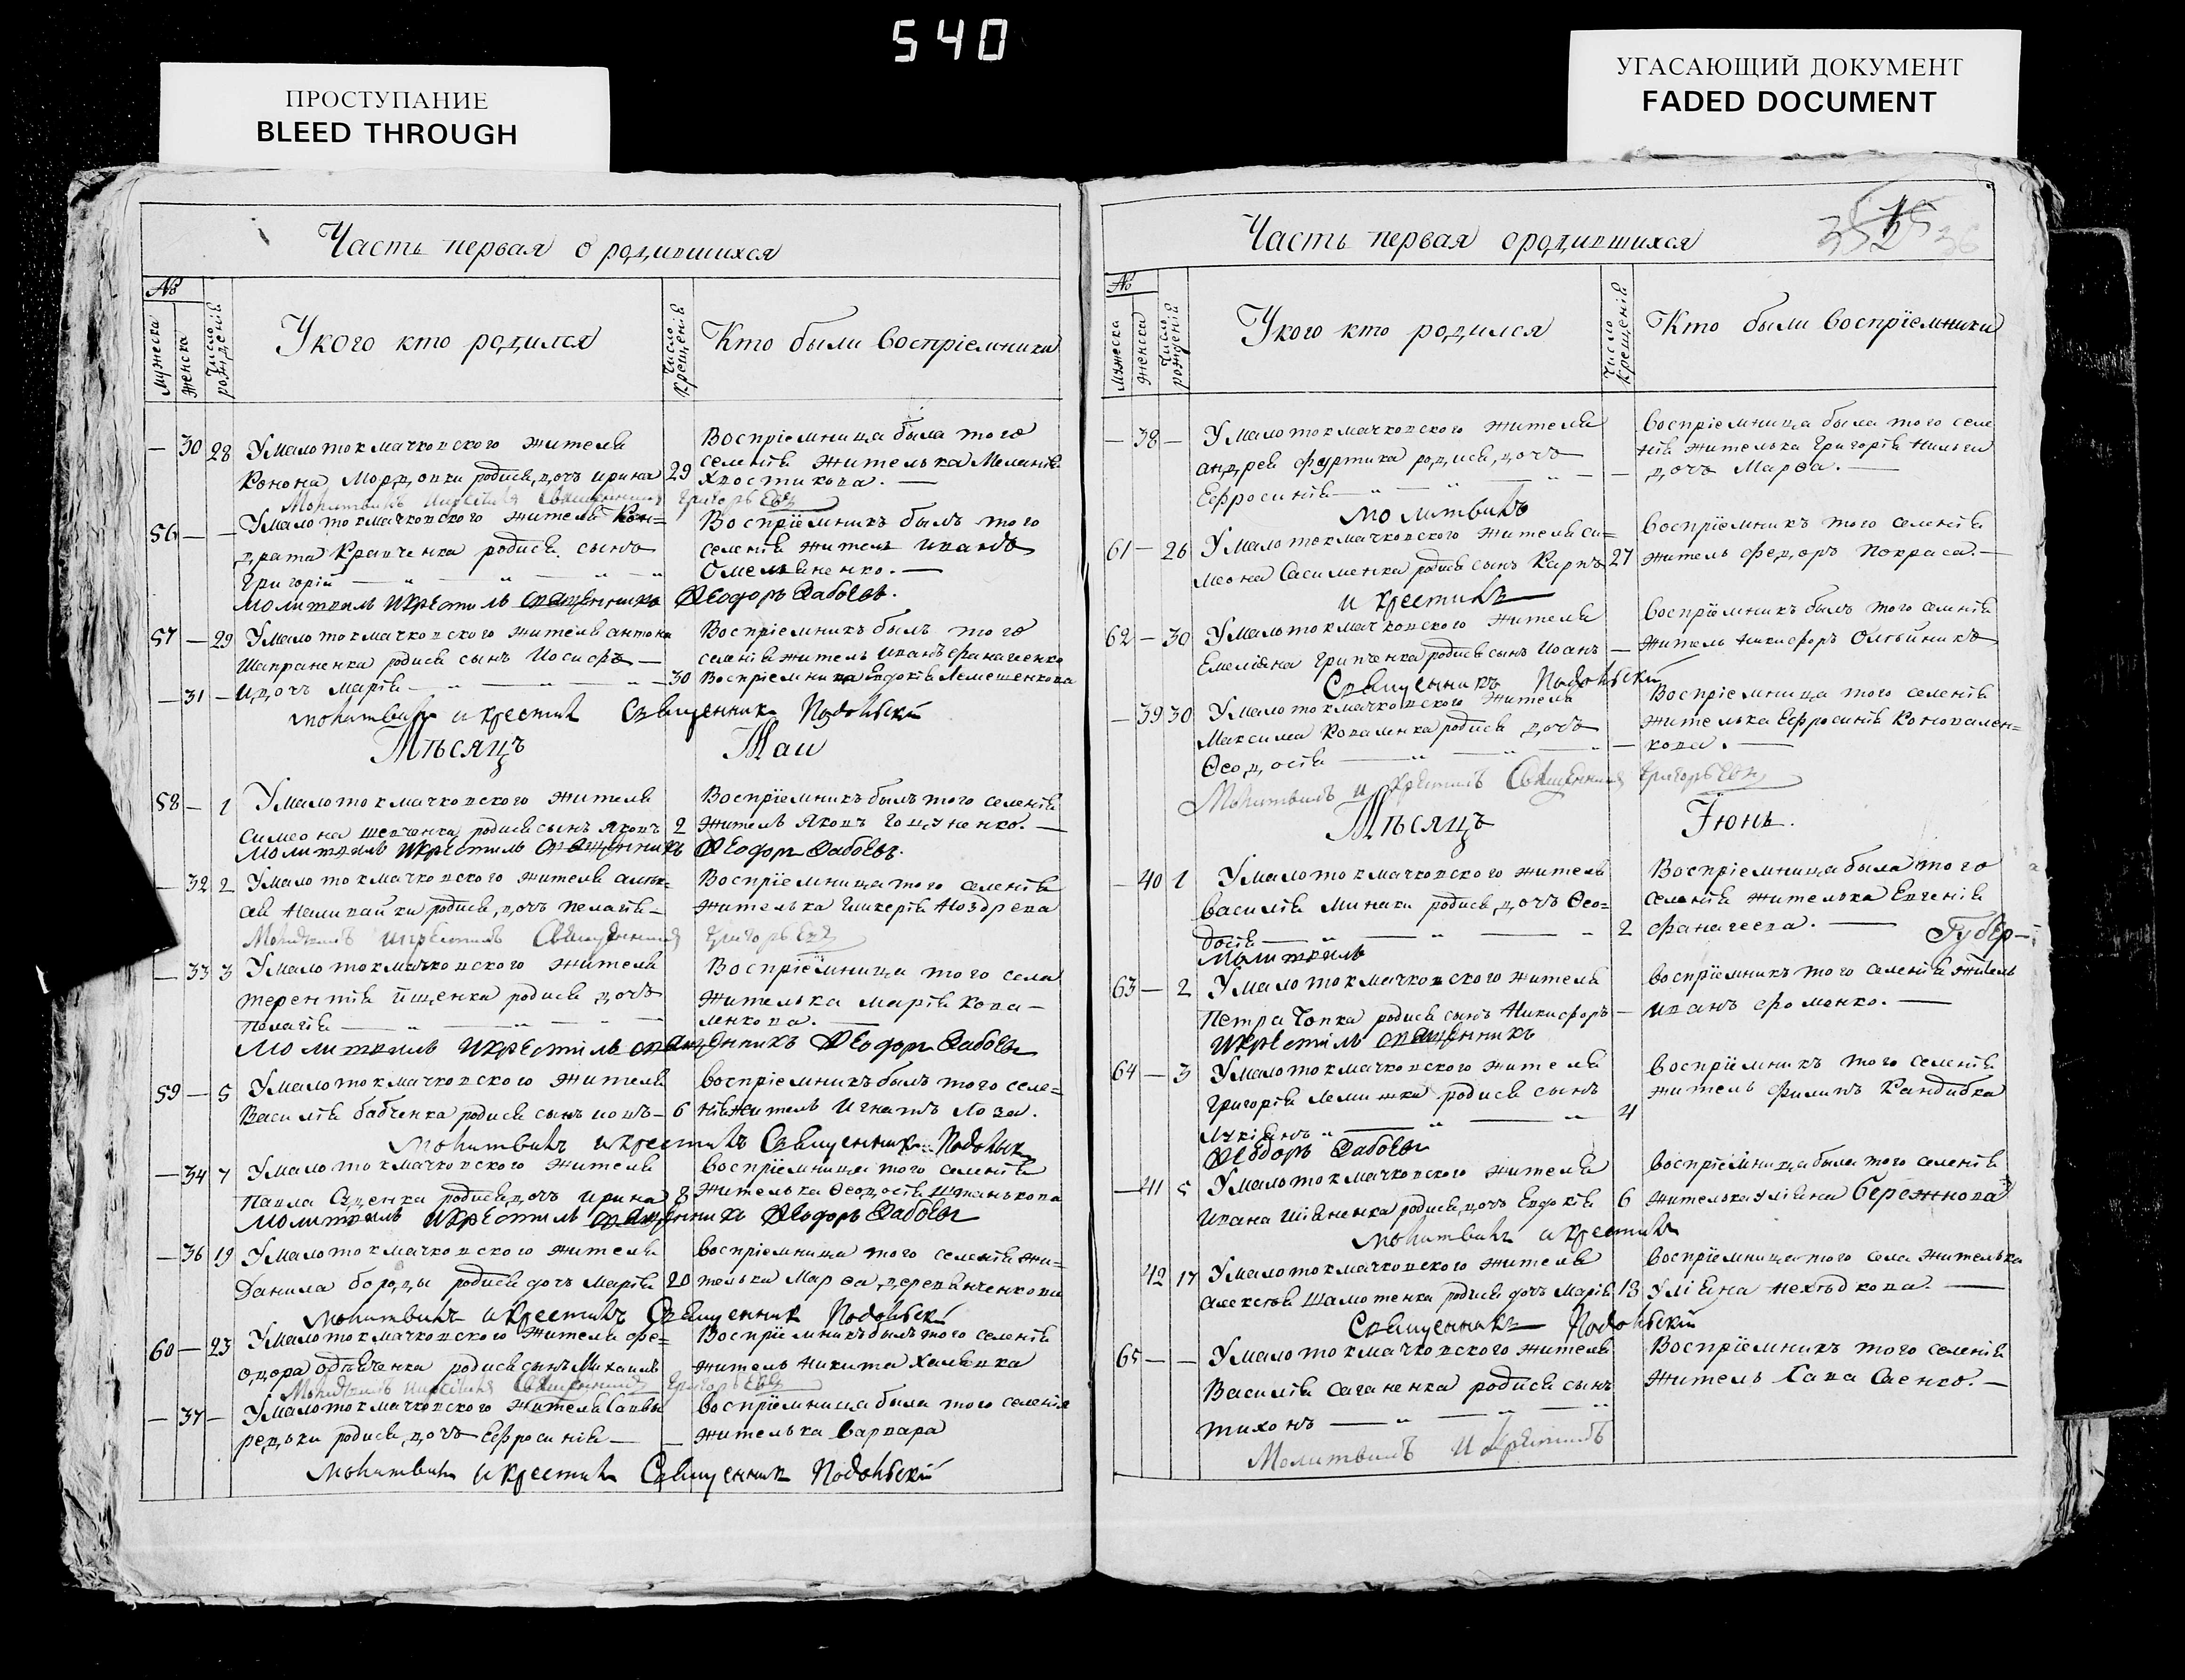 540
ПРОСТУПАНИЕ
BLEED THROUGH
УГАСАЮЩИЙ ДОКУМЕНТ
FADED DOCUMENT
Часть первая о родившихся
№
мужеска
женска
Число рожденія
У кого кто родился
Число крещенія
Кто были Воспріемники
— 30 28 У малотокмачковского жителя
Конона Мордовки родися дочъ ирина 29
Воспріемница была того
селенія жителька Меланія
Хвостикова. —
Молитвилъ и крестилъ Священникъ Григорьевъ
56 — — У малотокмачковского жителя Кон=
драта Кравченка родися сынъ
Григорій — „ — „ — „ — „
Воспріемникъ былъ того
селенія житель иванъ
Омельяненко. —
Молитвилъ и крестилъ священникъ Ѳеодоръ
57 — 29 У малотокмачковского жителя антона
Шапраненка родися сынъ Иосифъ —
Воспріемникъ былъ того
селенія житель иванъ
— 31 — и дочъ Марія — „ — „ — „ — 30
Воспріемница Евдокія Лемешенкова
молитвилъ и крестилъ Священникъ Подольскій
Мѣсяцъ Маи
58 — 1 У малотокмачковского жителя
симеона шевченка родися сынъ яковъ 2
Воспріемникъ былъ того селенія
житель яковъ
Молитвилъ и крестилъ священникъ Ѳеодоръ
— 32 2 У малотокмачковского жителя алек=
родися дочъ пелагія —
Воспріемница того селенія
жителька гликерія Ноздрева
Молитвилъ и крестилъ Священникъ Григорьевъ
— 33 3 У малотокмачковского жителя
терентія родися дочъ
пелагія — „ — „ — „ —
Воспріемница того села
жителька марія Кова-
ленкова. —
Молитвилъ и крестилъ священникъ Ѳеодоръ
59 — 5 У малотокмачковского жителя
Василія бабченка родися сынъ иовъ — 6
воспріемникъ былъ того селе=
нія житель Игнатъ Лоза.
Молитвилъ и крестилъ Священникъ Подольскій
— 34 7 У малотокмачковского жителя
Павла родися дочъ ирина 8
воспріемница того селенія
жителька Ѳеодосія Штанькова
Молитвилъ и крестилъ священникъ Ѳеодоръ
— 36 19 У малотокмачковского жителя
Данила бороды родися дочъ Марія 20
воспріемница того селенія жи=
телька Марѳа деревянченкова
Молитвилъ и крестилъ Священникъ Подольскій
60 — 23 У малотокмачковского жителя фе=
одора родися сынъ Михаилъ
Воспріемникъ былъ того селенія
житель Никита Халявка
Молитвилъ и крестилъ Священникъ Григорьевъ
— 37 — У малотокмачковского жителя Саввы
редьки родися дочъ Ефросинія — —
воспріемница была того селенія
жителька варвара
Молитвилъ и крестилъ Священникъ Подольскій
Часть первая о родившихся
36
№
мужеска
женска
Число рожденія
У кого кто родился
Число крещенія
Кто были воспріемники
— 38 — У малотокмачковского жителя
андрея фуртика родися дочъ
Ефросинія — „ — „ — „ —
воспріемница была того селе
нія жителька Григорія
дочъ Марѳа. —
Молитвилъ
61 — 26 У малотокмачковского жителя си=
меона родися сынъ Карпъ 27
воспріемникъ того селенія
житель федоръ покраса. —
и крестилъ
62 — 30 У малотокмачковского жителя
Емеліяна Грипченка родися сынъ Иоанъ —
воспріемникъ былъ того селенія
житель никифоръ Олейникъ
Священникъ Подольскій
— 39 30 У малотокмачковского жителя
Максима Коваленка родися дочъ
Ѳеодосія — „ — „ — „ —
Воспріемница того селенія
жителька Ефросинія Коновален=
кова. —
Молитвилъ и крестилъ Священникъ Григорьевъ
Мѣсяцъ Іюнь.
— 40 1 У малотокмачковского жителя
василія Миники родися дочъ Ѳео=
досія — „ — „ — „ 2
Воспріемница была того
селенія жителька Евгенія
фанагеева. — Губер—
Молитвилъ
63 — 2 У малотокмачковского жителя
Петра Чопка родися сынъ Никифоръ —
воспріемникъ того селенія житель
иванъ фоменко. —
и крестилъ священникъ
64 — 3 У малотокмачковского жителя
Григорія родися сынъ
Лукіянъ „ — „ — „ 4
воспріемникъ того селенія
житель филипъ Кандибка
Ѳеодоръ
— 41 5 У малотокмачковского жителя
Ивана Шіяненка родися дочъ Евдокія 6
воспріемница была того селенія
жителька уліяна бережнова
Молитвилъ и крестилъ
42 17 У малотокмачковского жителя
алексѣя Шамотенка родися дочъ Марія 18
воспріемница того села жителька
Уліяна
Священникъ Подольскій
65 — — У малотокмачковского жителя
Василія саганенка родися сынъ
тихонъ — „ — „ — „
Воспріемникъ того селенія
житель Сава Саенко. —
Молитвилъ и крестилъ